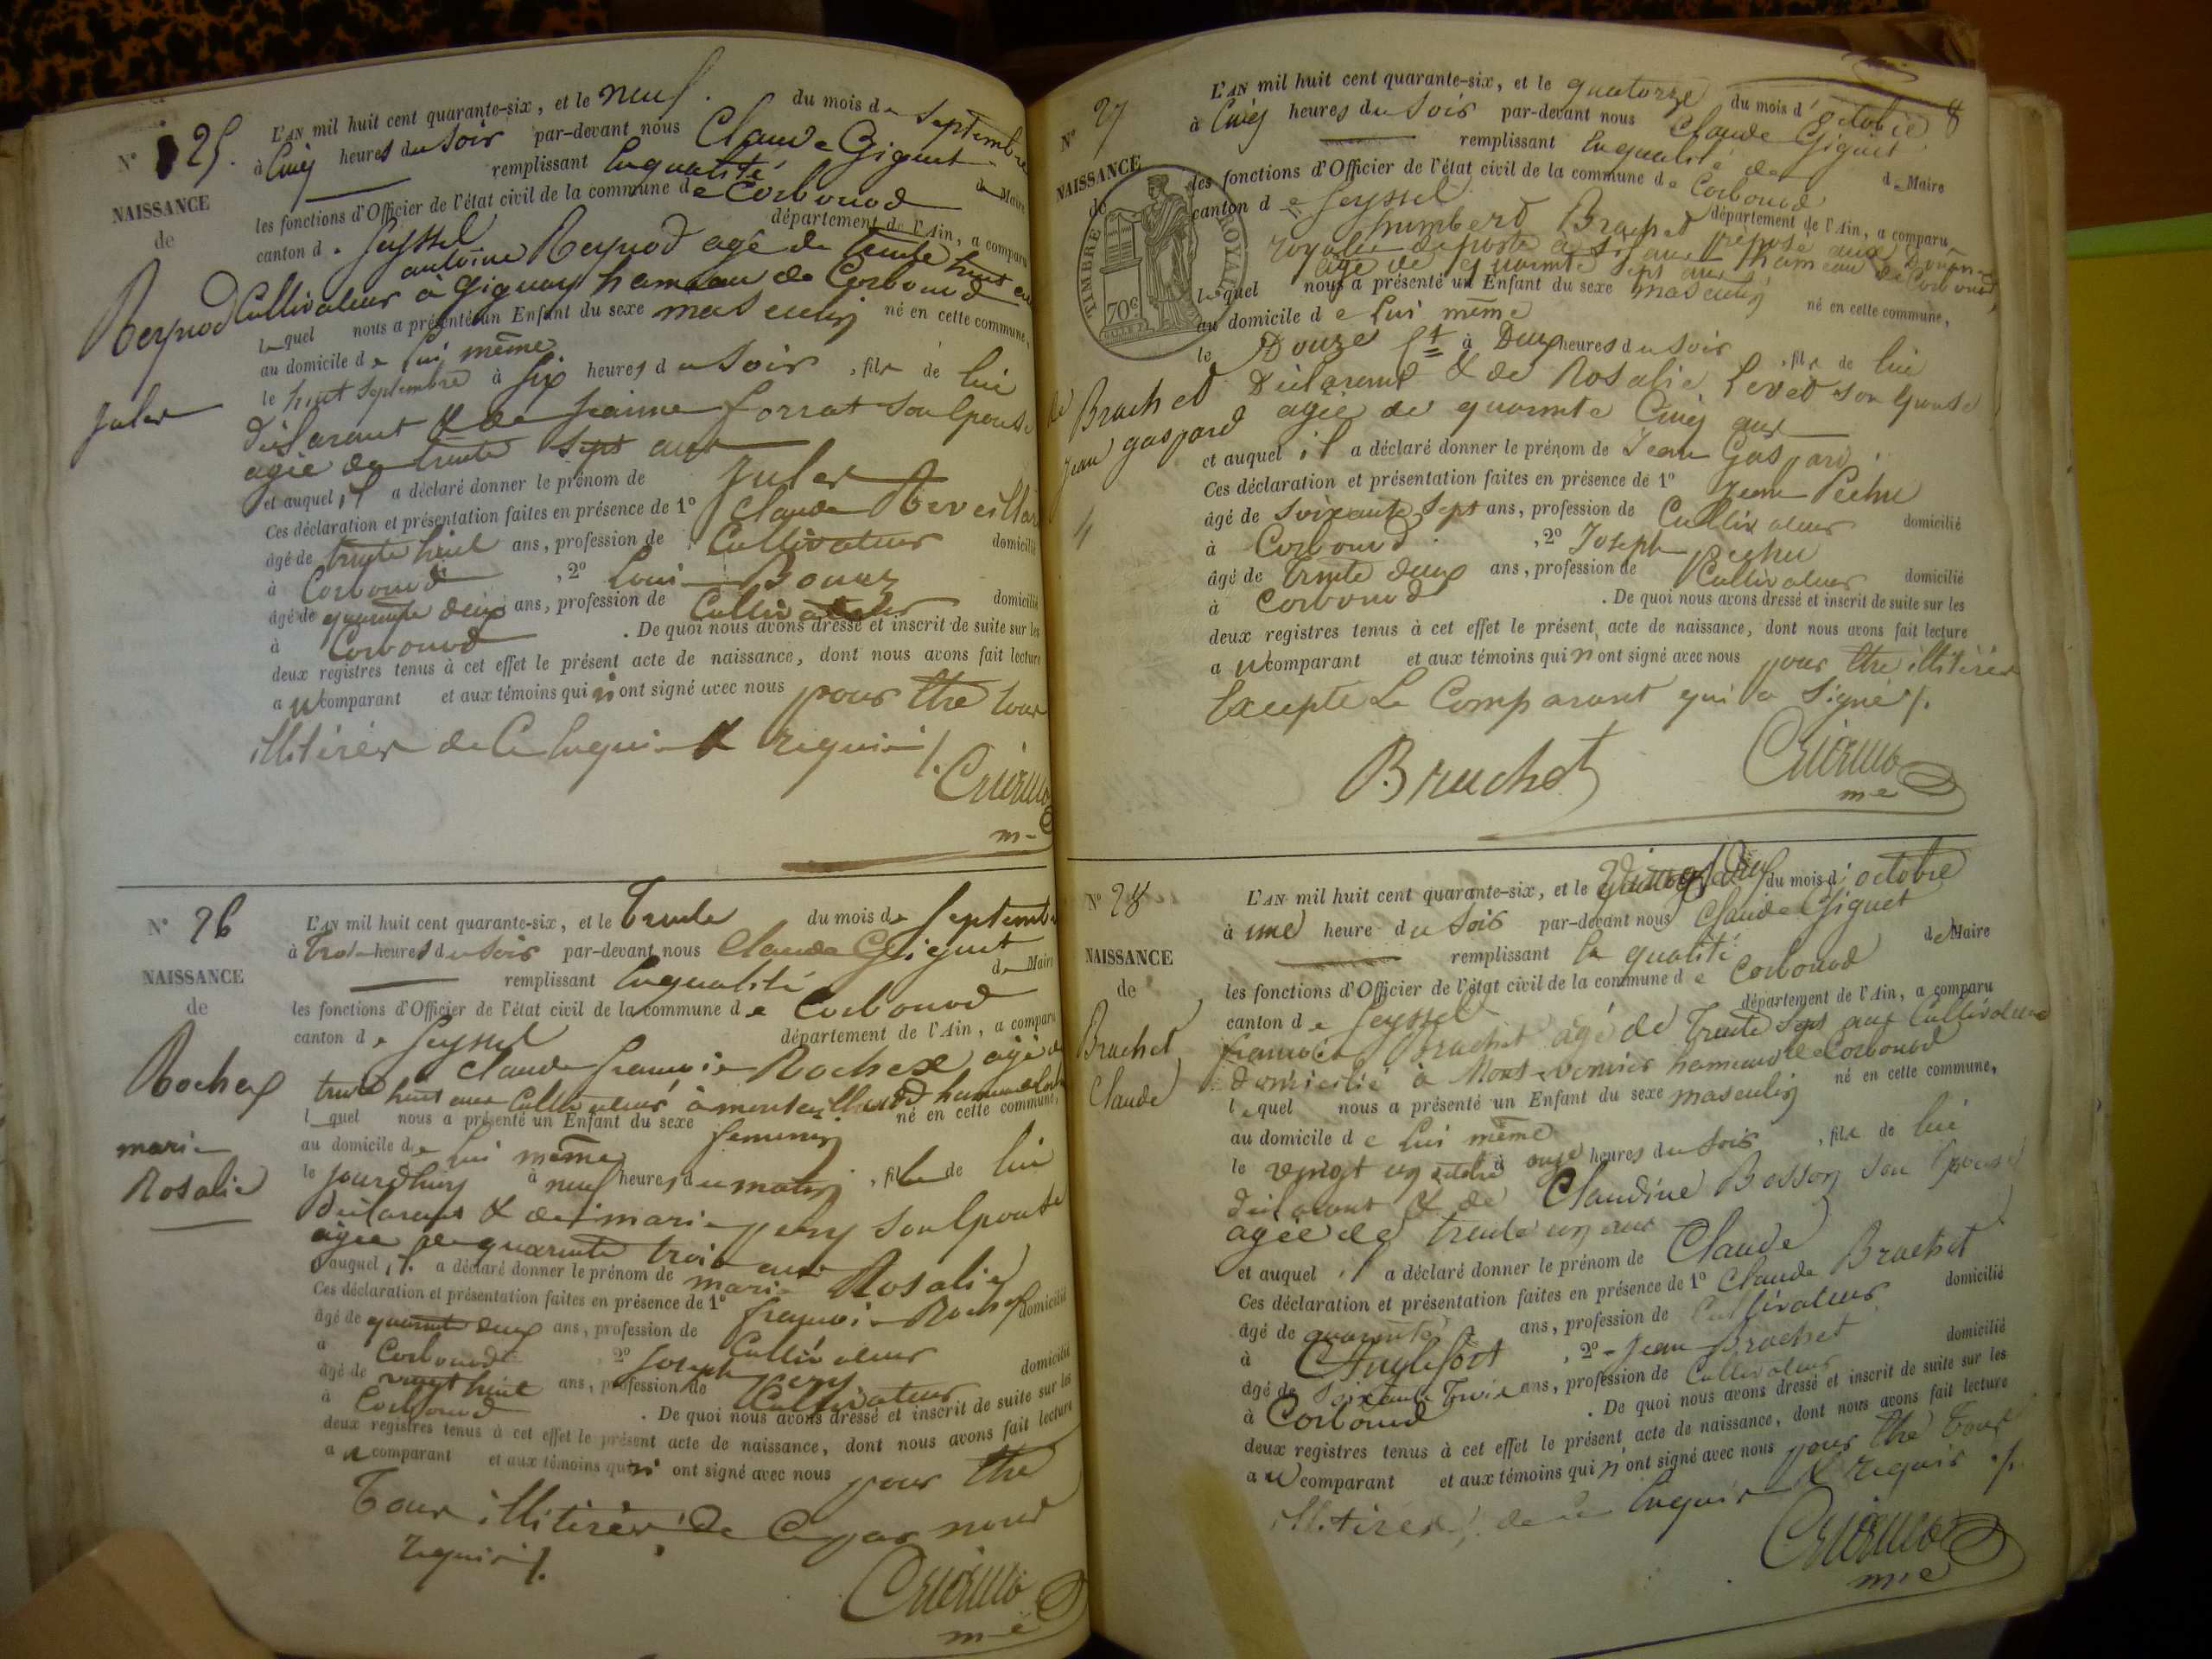 N° 25.
NAISSANCE
de
Reynod
Jules
L'AN mil huit cent quarante-six, et le neuf du mois de Septembre
à Cinq heures du Soir par-devant nous Claude Giguet
remplissant la qualité de Maire
les fonctions d'Officier de l'état civil de la commune de Corbonod
canton de Seyssel département de l'Ain, a comparu
antoine Reynod agé de trente huit ans
Cultivateur à Gignay hameau de Corbonod
lequel nous a présenté un Enfant du sexe masculin né en cette commune,
au domicile de lui même
le huit Septembre à Six heures du Soir, fils de lui
Déclarant & de Jeanne Forrat son Epouse
agée de trente Sept ans
et auquel il a déclaré donner le prénom de Jules
Ces déclaration et présentation faites en présence de 1° Claude
âgé de trente huit ans, profession de Cultivateur domicilié
à Corbonod, 2° Loui
âgé de quarante deux ans, profession de Cultivateur domicilié
à Corbonod. De quoi nous avons dressé et inscrit de suite sur les
deux registres tenus à cet effet le présent acte de naissance, dont nous avons fait lecture
au comparant et aux témoins qui n'ont signé avec nous pour être tous
illitérés de ce enquis & requis /.
me
N° 26
NAISSANCE
de
Rochex
marie
Rosalie
L'AN mil huit cent quarante-six, et le Trente du mois de Septembre
à Trois heures du Soir par-devant nous Claude Giguet
remplissant la qualité de Maire
les fonctions d'Officier de l'état civil de la commune de Corbonod
canton de Seyssel département de l'Ain, a comparu
Claude françois Rochex agé de
trente huit ans Cultivateur à
lequel nous a présenté un Enfant du sexe feminin né en cette commune,
au domicile de lui même
le jourdhuy à neuf heures du matin, fille de lui
Déclarant & de marie pery son Epouse
agée de quarante trois ans
auquel il a déclaré donner le prénom de marie Rosalie
Ces déclaration et présentation faites en présence de 1° françois Rochex domicilié
âgé de quarante deux ans, profession de Cultivateur
à Corbonod 2° Joseph pery
âgé de vingt huit ans, profession de Cultivateur domicilié
à Corbonod. De quoi nous avons dressé et inscrit de suite sur les
deux registres tenus à cet effet le présent acte de naissance, dont nous avons fait lecture
au comparant et aux témoins qui n'ont signé avec nous pour être
Tous illitérés de ce par nous
requis /.
me
8
N° 27
NAISSANCE
de
TIMBRE ROYAL
70c
de Brachet
Jean gaspard
4
L'AN mil huit cent quarante-six, et le quatorze du mois d'octobre
à Cinq heures du Soir par-devant nous Claude Giguet
remplissant la qualité de de Maire
les fonctions d'Officier de l'état civil de la commune de Corbonod
canton de Seyssel département de l'Ain, a comparu
humbert Brachet préposé aux Douanes
agé de quarante sept ans
lequel nous a présenté un Enfant du sexe masculin né en cette commune,
au domicile de lui même
le Douze Ct à Deux heures du Soir, fils de lui
Déclarant & de Rosalie Levet son Epouse
agée de quarante Cinq ans
et auquel il a déclaré donner le prénom de Jean Gaspard
Ces déclaration et présentation faites en présence de 1° Jean Pechu
âgé de Soixante Sept ans, profession de Cultivateur domicilié
à Corbonod, 2° Joseph pechu
âgé de trente deux ans, profession de Cultivateur domicilié
à Corbonod. De quoi nous avons dressé et inscrit de suite sur les
deux registres tenus à cet effet le présent acte de naissance, dont nous avons fait lecture
au comparant et aux témoins qui n'ont signé avec nous pour être illitérés
Excepté Le Comparant qui a Signé /.
Brachet
me
N° 28
NAISSANCE
de
Brachet
Claude
L'AN mil huit cent quarante-six, et le Vingt Deux du mois d'octobre
à une heure du Soir par-devant nous Claude Giguet
remplissant la qualité de Maire
les fonctions d'Officier de l'état civil de la commune de Corbonod
canton de Seyssel département de l'Ain, a comparu
françois Brachet agé de Trente Sept ans Cultivateur
domicilié à hameau de Corbonod
lequel nous a présenté un Enfant du sexe masculin né en cette commune,
au domicile de lui même
le vingt un octobre à onze heures du Soir, fils de lui
déclarant & de Claudine Bosson son Epouse
agée de trente un ans
et auquel il a déclaré donner le prénom de Claude
Ces déclaration et présentation faites en présence de 1° Claude Brachet
âgé de quarante ans, profession de Cultivateur domicilié
à Anglefort, 2° Jean Brachet
âgé de Soixante Trois ans, profession de Cultivateur domicilié
à Corbonod. De quoi nous avons dressé et inscrit de suite sur les
deux registres tenus à cet effet le présent acte de naissance, dont nous avons fait lecture
au comparant et aux témoins qui n'ont signé avec nous pour être Tous
illitérés, de ce Enquis & requis /.
me